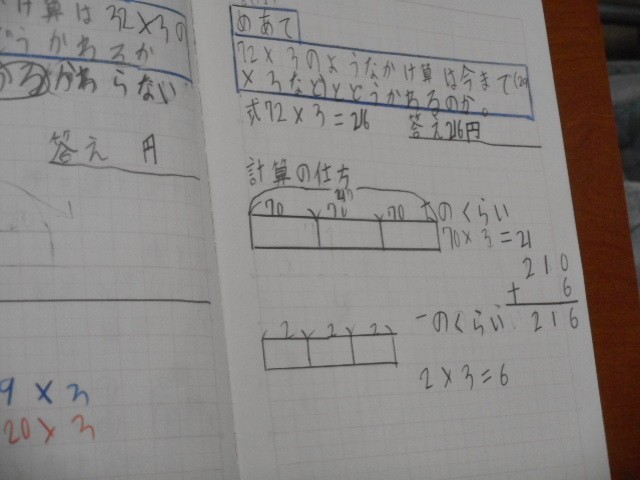 け算は32×3の
どうかわるか
かわらない
答え 円
9×3
20×3
めあて
72×3のようなかけ算は今まで(20
×3など)とどうかわるのか。
式72×3=216 答え216円
計算の仕方
70 70 70 十のくらい
70×3=21
210
+ 6
216
2 2 2 一のくらい
2×3=6